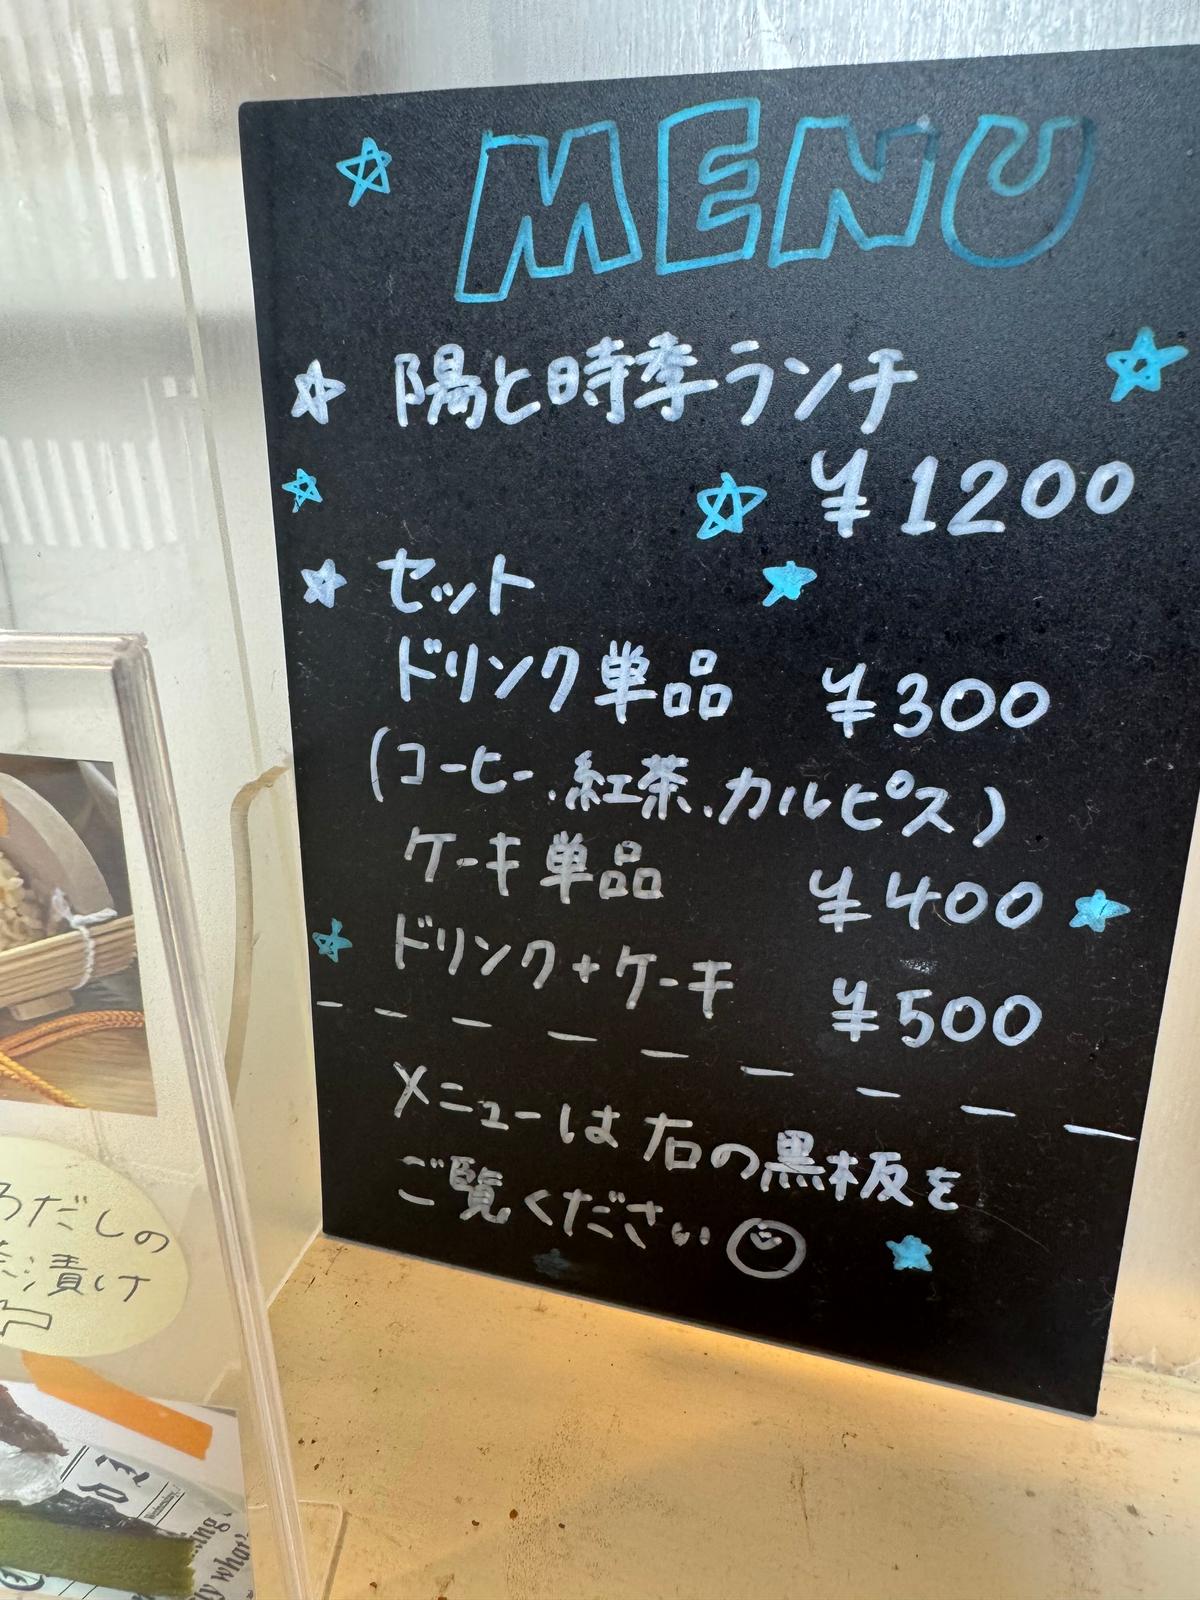 MENU
☆ 陽と時季ランチ
¥1200
☆ セット
ドリンク単品 ¥300
(コーヒー、紅茶、カルピス)
ケーキ単品 ¥400
ドリンク+ケーキ ¥500
メニューは右の黒板を
ご覧ください
ろだしの
茶漬け